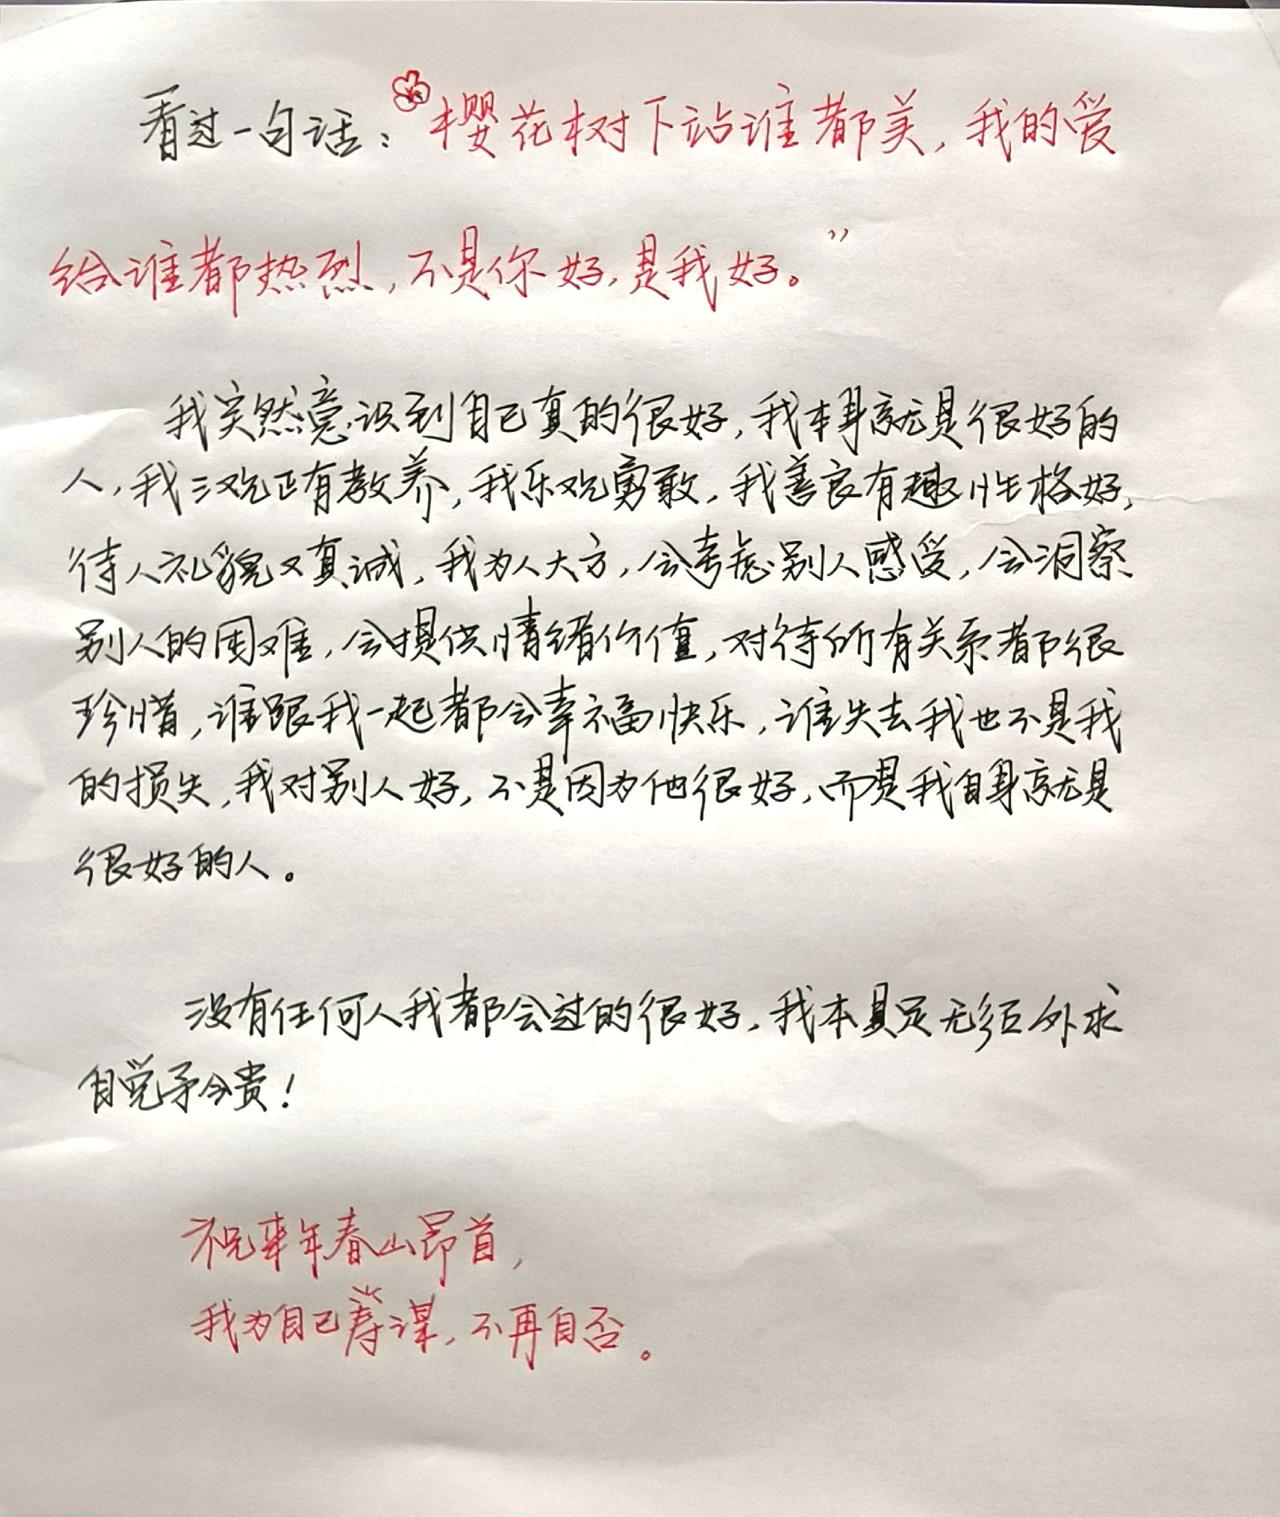 看过一句话：“樱花树下站谁都美，我的爱
给谁都热烈，不是你好，是我好。”
我突然意识到自己真的很好，我本身就是很好的
人，我三观正有教养，我乐观勇敢，我善良有趣性格好，
待人礼貌又真诚，我为人大方，会考虑别人感受，会洞察
别人的困难，会提供情绪价值，对待所有关系都很
珍惜，谁跟我一起都会幸福快乐，谁失去我也不是我
的损失，我对别人好，不是因为他很好，而是我自身就是
很好的人。
没有任何人我都会过的很好，我本具足无须外求
自觉矜贵！
祝来年春山昂首，
我为自己筹谋，不再自否。